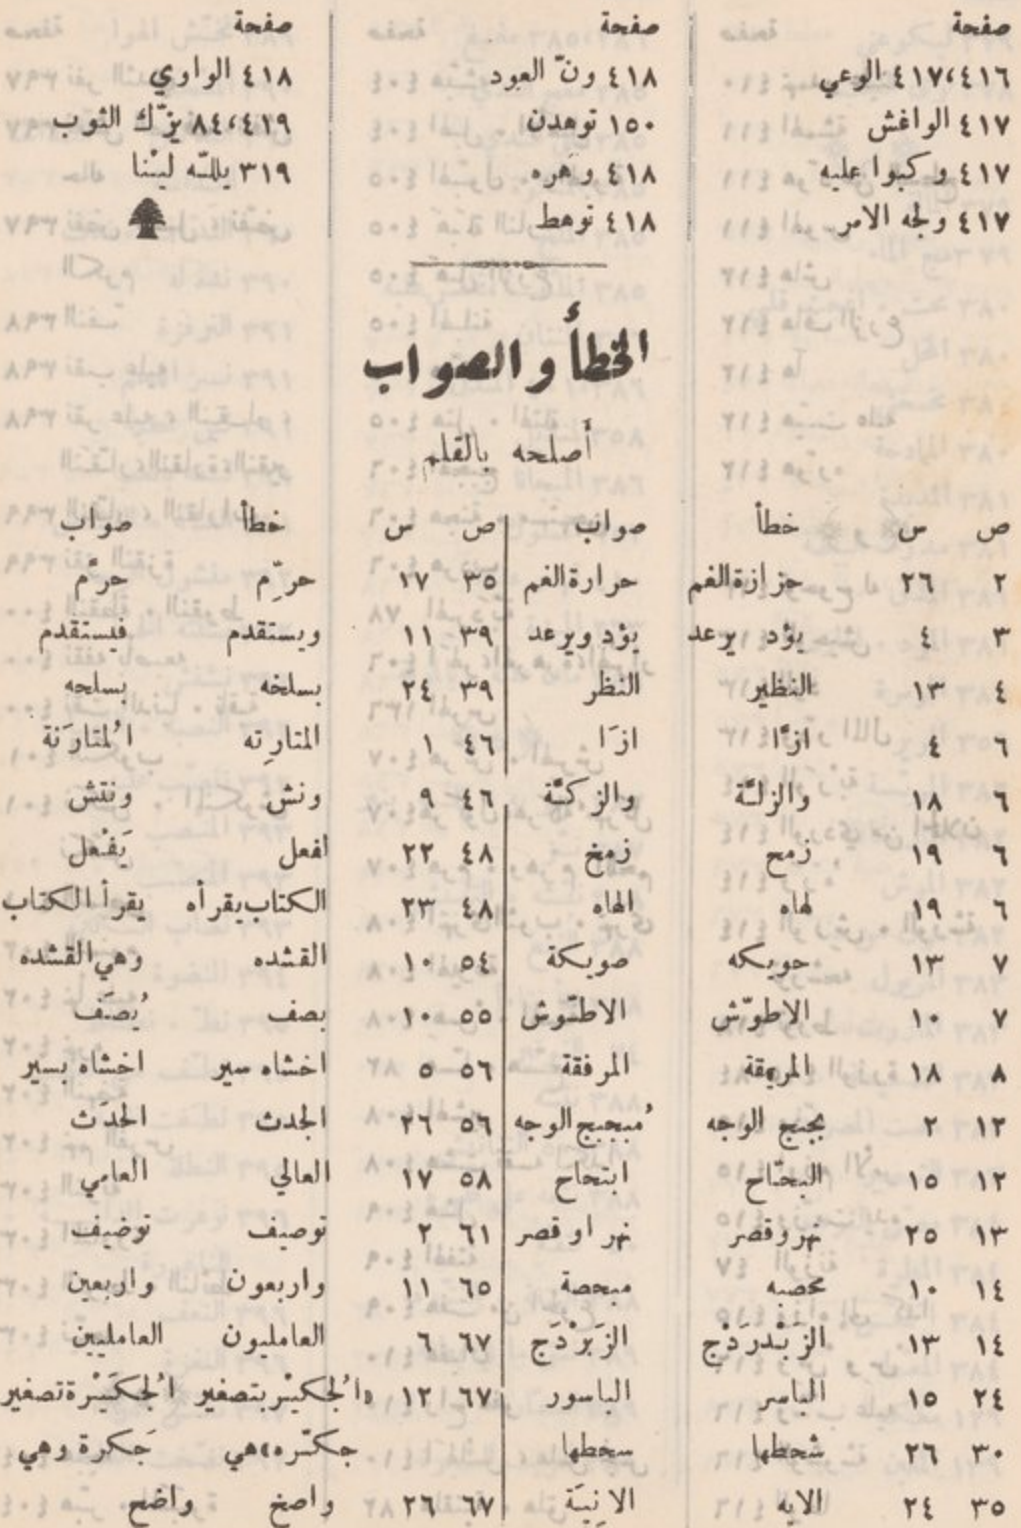 صفحة
٤١٧،٤١٦ الوعي
٤١٧ الواغش
٤١٧ وكبوا عليه
٤١٧ ولجه الامر
صفحة
٤١٨ ونّ العود
١٥٠ توهدن
٤١٨ وهره
٤١٨ توهط
صفحة
٤١٨ الواوي
٨٤،٤١٩ يزّك الثوب
٣١٩ يللّه ليْنا
الخطأ والصواب
أصلحه بالقلم
ص س خطأ صواب
٢ ٢٦ حزازة الغم حرارة الغم
٣ ٤ يؤد يرعد يؤد ويرعد
٤ ١٣ النظير النظر
٦ ٤ ازًّا ازَا
٦ ١٨ والزلَّة والزكَّة
٦ ١٩ زمح زمخ
٦ ١٩ لهاه الهاه
٧ ١٣ حويكه صويكة
٧ ١٠ الاطوّش الاطّوش
٨ ١٨ المريقة المرفقة
١٢ ٢ بجبج الوجه مُبجبج الوجه
١٢ ١٥ البحتّاح ابتحاح
١٣ ٢٥ نهر وقصر نهر او قصر
١٤ ١٠ محصبه مبحصة
١٤ ١٣ الزَبْدرَدْج الزَبَرْدَج
٢٤ ١٥ الياسر الباسور
٣٠ ٢٦ شحطها سحطها
٣٥ ٢٤ الايه الانِيَة
ص س خطأ صواب
٣٥ ١٧ حرِّم حرَّم
٣٩ ١١ ويستقدم فيستقدم
٣٩ ٢٤ بسلخه بسلحه
٤٦ ١ المتارِته المُتارَنة
٤٦ ٩ ونش ونتش
٤٨ ٢٢ افعل يَفْعل
٤٨ ٢٣ الكتاب يقرأه يقرأ الكتاب
٥٤ ١٠ القشده وهي القشده
٥٥ ١٠ بصف يُصَف
٥٦ ٥ اخشاه سير اخشاه بسير
٥٦ ٢٦ الجدث الحدَث
٥٨ ١٧ العالي العامي
٦١ ٢ توصيف توضيف
٦٥ ١١ واربعون واربعين
٦٧ ٦ العامليون العامليين
٦٧ ١٢ «الُجكيْر بتصغير الُجكَيْرة تصغير
جكّره»هي جَكرة وهي
٦٧ ٢٦ واصخ واضح